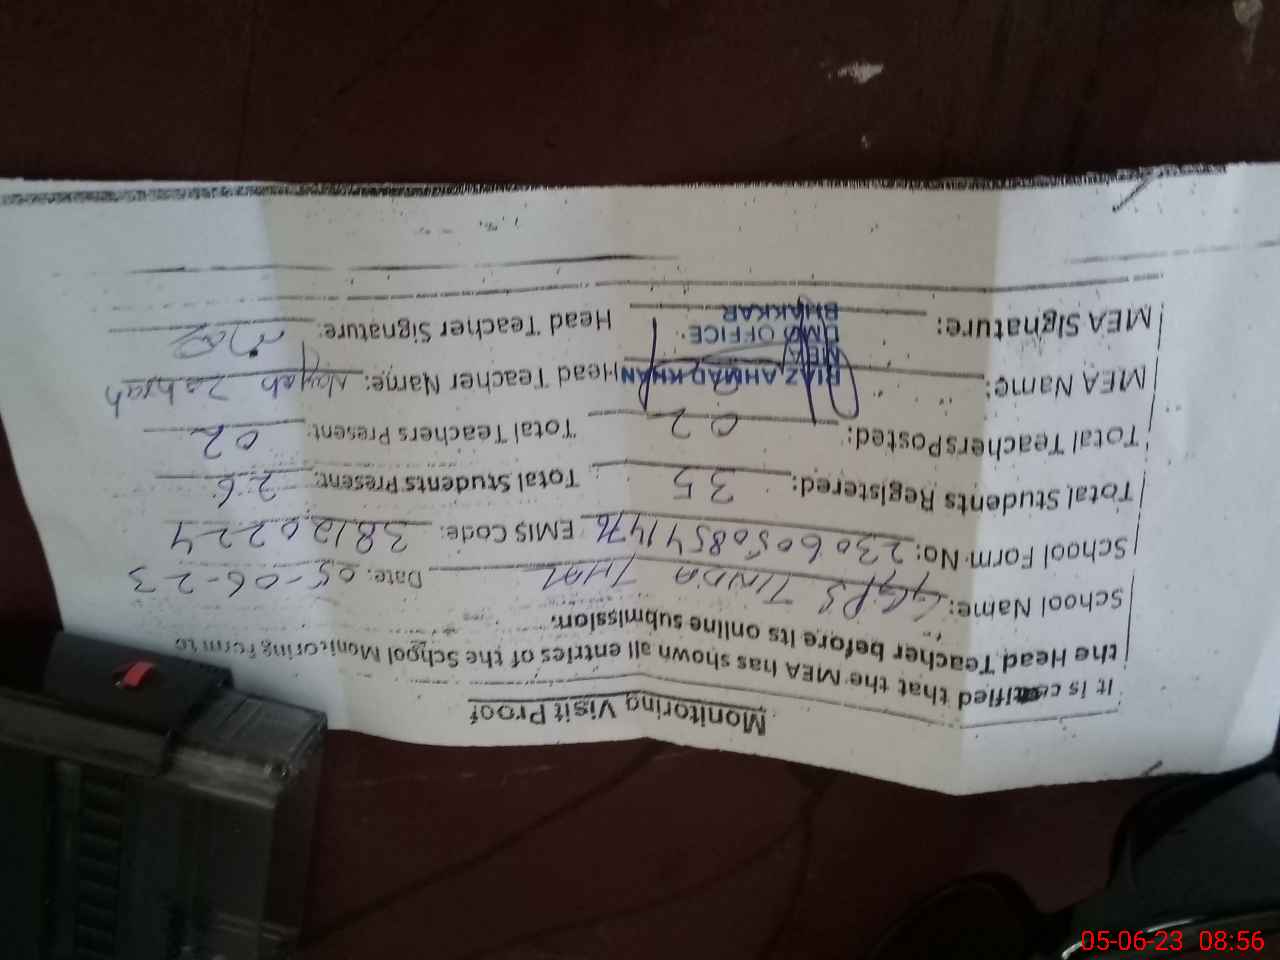 Monitoring Visit Proof
It is certified that the MEA has shown all entries of the School Monitoring Form to
the Head Teacher before its online submission.
School Name: GGPS TINDA THAL Date: 05-06-23
School Form No: 2306050854141476 EMIS Code: 38120224
Total Students Registered: 35 Total Students Present: 26
Total Teachers Posted: 02 Total Teachers Present: 02
MEA Name: RIAZ AHMAD KHAN Head Teacher Name: Nayab Zahrah
MEA
DMO OFFICE
BHAKKAR
MEA Signature: Head Teacher Signature:
05-06-23 08:56